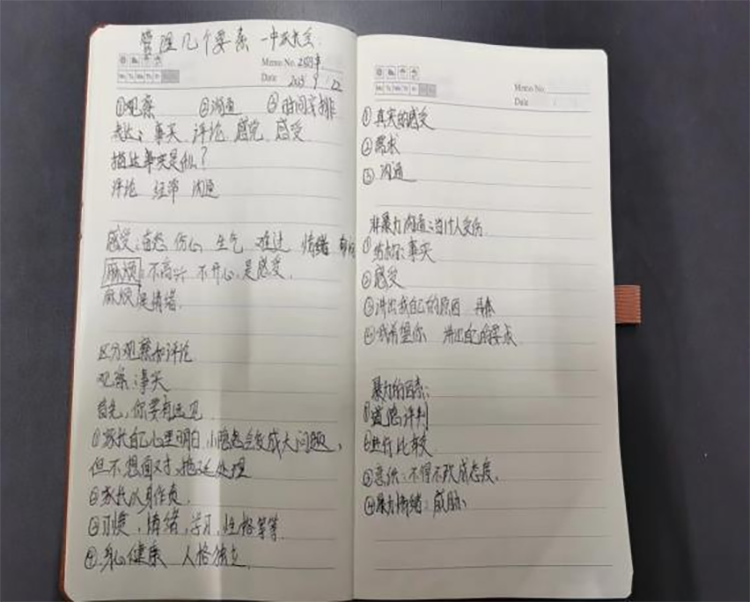 管理几个要素 一中家长会
Memo No. 2023年
Date 2023 9 22
①观察 ②沟通 ③时间安排
表达：事实 评论 感觉 感受
描述事实是什么？
评论 经常 沟通
感受：喜怒 伤心 生气 难过 情绪
麻烦：不高兴 不开心,是感受.
麻烦是情绪.
区分观察和评论
观察：事实
首先，你要有远见
①家长自己心里明白,小隐患会变成大问题，
但不想面对,拖延处理
②家长以身作责
③习惯，情绪,学习,性格等等.
④身心健康 人格独立.
Memo No.
Date
①真实的感受
②需求
③沟通
非暴力沟通：当讨人受伤
①事实
②感受
③讲出我自己的原因 具体
④我希望你 讲出自己的要求
暴力的因素：
①道德评判
②进行比较
③ 不得不改成态度.
④暴力情绪：威胁